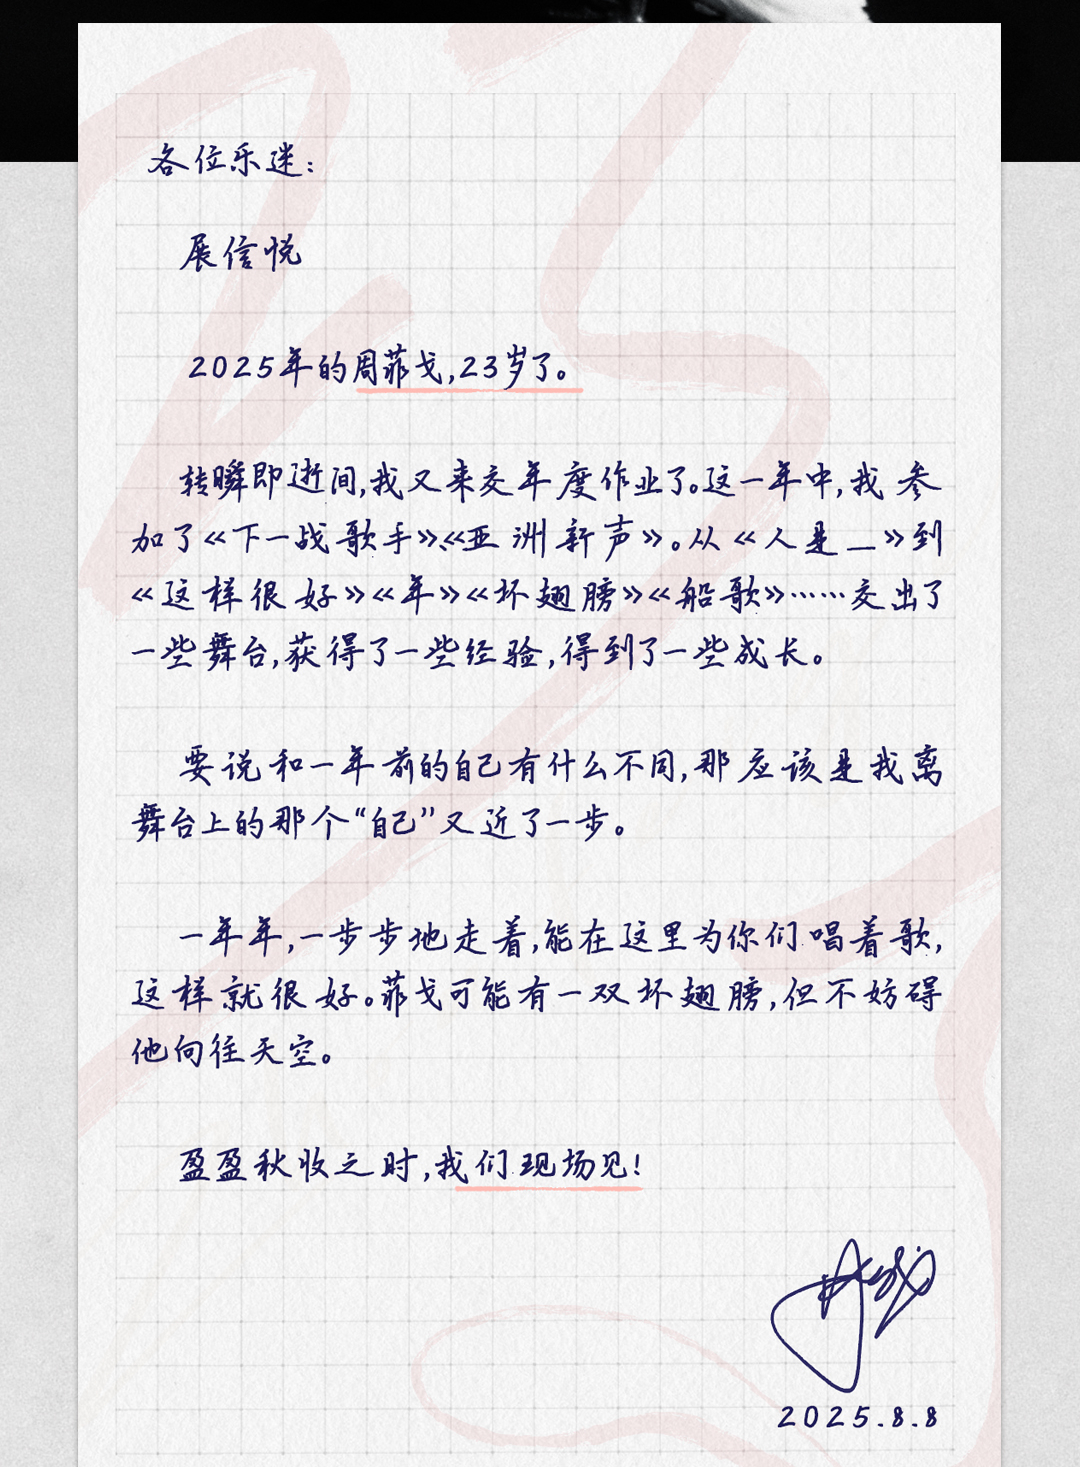 各位乐迷:
展信悦
2025年的周菲戈,23岁了。
转瞬即逝间,我又来交年度作业了。这一年中,我参
加了《下一战歌手》、《亚洲新声》。从《人是_》到
《这样很好》《年》《坏翅膀》《船歌》……交出了
一些舞台,获得了一些经验,得到了一些成长。
要说和一年前的自己有什么不同,那应该是我离
舞台上的那个“自己”又近了一步。
一年年,一步步地走着,能在这里为你们唱着歌,
这样就很好。菲戈可能有一双坏翅膀,但不妨碍
他向往天空。
盈盈秋收之时,我们现场见!
2025.8.8